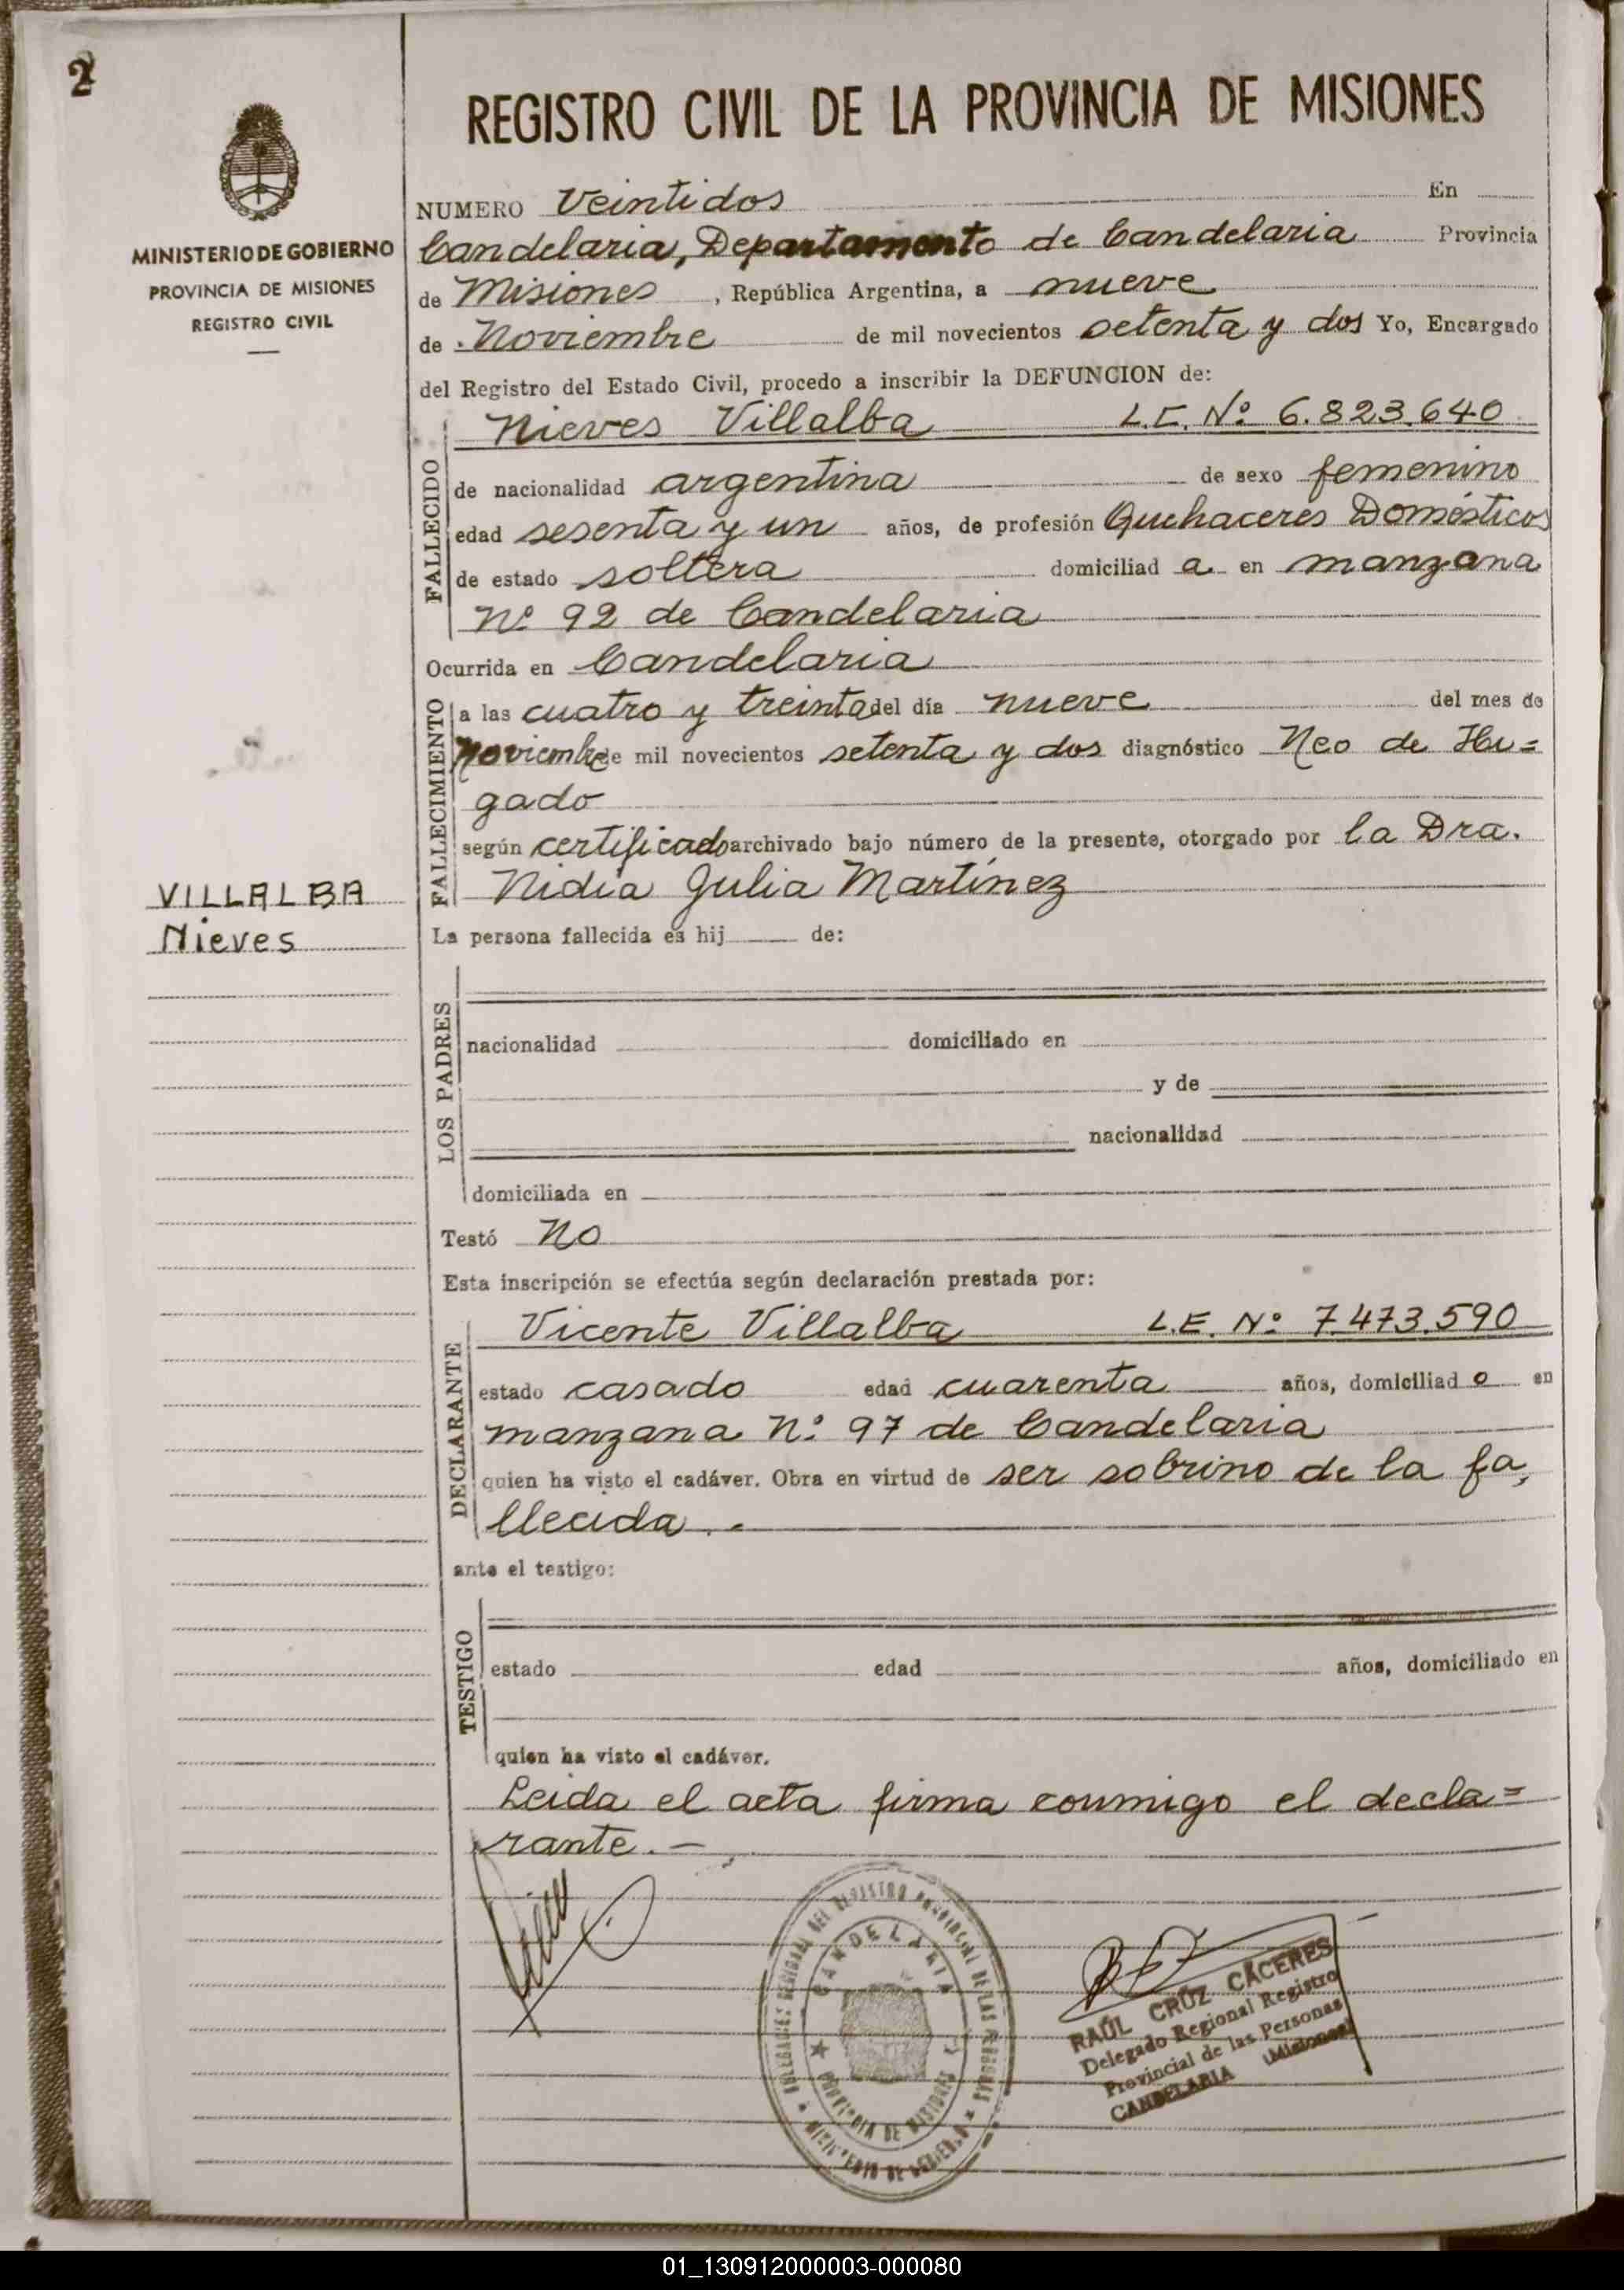 2
REGISTRO CIVIL DE LA PROVINCIA DE MISIONES
MINISTERIO DE GOBIERNO
PROVINCIA DE MISIONES
REGISTRO CIVIL
NUMERO Veintidos En
Candelaria, Departamento de Candelaria Provincia
de Misiones, República Argentina, a nueve
de Noviembre de mil novecientos setenta y dos Yo, Encargado
del Registro del Estado Civil, procedo a inscribir la DEFUNCION de:
FALLECIDO
Nieves Villalba L.C. Nº 6.823.640
de nacionalidad argentina de sexo femenino
edad sesenta y un años, de profesión Quehaceres Domésticos
de estado soltera domiciliad a en manzana
Nº 92 de Candelaria
Ocurrida en Candelaria
FALLECIMIENTO
a las cuatro y treinta del día nueve del mes de
Noviembre de mil novecientos setenta y dos diagnóstico Neo de Hi=
gado
según certificado archivado bajo número de la presente, otorgado por la Dra.
Nidia Julia Martínez
VILLALBA
Nieves
La persona fallecida es hij de:
LOS PADRES
nacionalidad domiciliado en
y de
nacionalidad
domiciliada en
Testó No
Esta inscripción se efectúa según declaración prestada por:
DECLARANTE
Vicente Villalba L.E. Nº 7.473.590
estado casado edad cuarenta años, domiciliad o en
manzana Nº 97 de Candelaria
quien ha visto el cadáver. Obra en virtud de ser sobrino de la fa,
llecida.-
ante el testigo:
TESTIGO
estado edad años, domiciliado en
quien ha visto el cadáver.
Leida el acta firma conmigo el decla=
rante.-
CANDELARIA
PROVINCIA DE MISIONES
MINISTERIO DE GOBIERNO
RAÚL CRUZ CÁCERES
Delegado Regional Registro
Provincial de las Personas
CANDELARIA (Misiones)
01_130912000003-000080